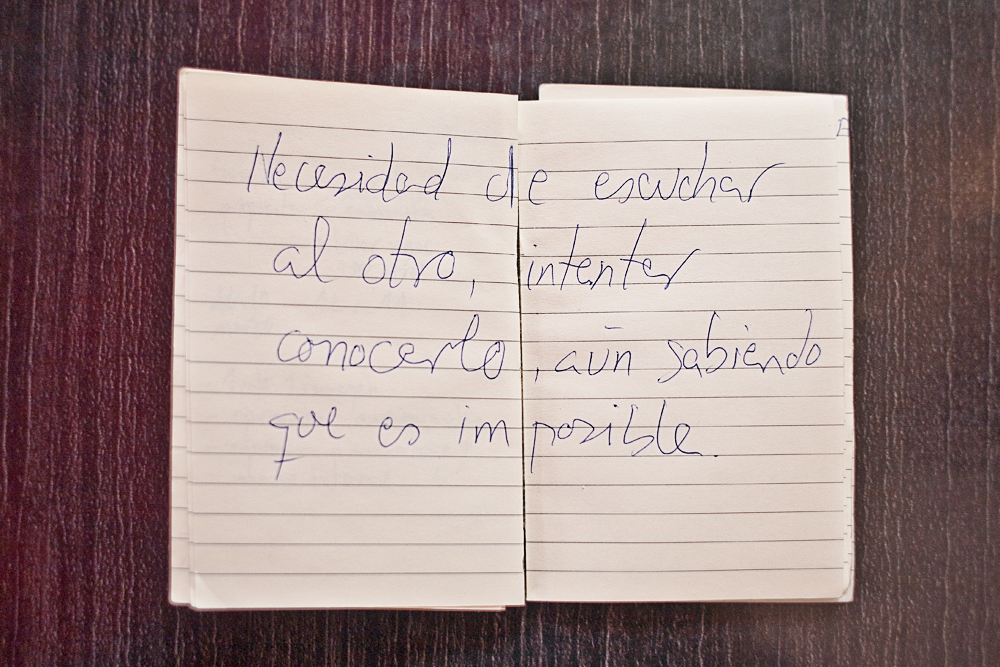 Necesidad de escuchar
al otro, intentar
conocerlo, aún sabiendo
que es imposible.
E